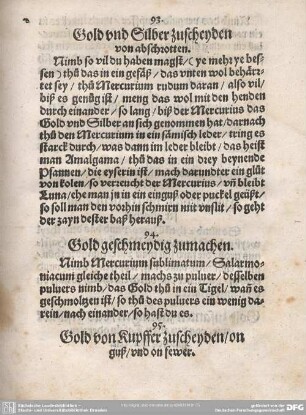 93.
Gold vnd Silber zuscheyden
von abschrotten.
Nimb so vil du haben magst/ (ye mehr ye bes
sen) thů das in ein gefäß/ das vnten wol behärt
tet sey/ thů Mercurium rudum daran/ also vil/
biß es genůg ist/ meng das wol mit den henden
durch einander/ so lang/ biß der Mercurius das
Gold vnd Silber an sich genomen hat/ darnach
thů den Mercurium in ein sämisch leder/ tring es
starck durch/ was dann im leder bleibt/ das heist
man Amalgama/ thů das in ein drey beynende
Pfannen/ die eyserin ist/ mach darundter ein glůt
von kolen/ so verreucht der Mercurius/ vñ bleibt
Luna/ ehe man jn in ein einguß oder puckel geüßt/
so soll man den vorhin schmirn mit vnslit/ so geht
der zayn dester baß herauß.
94.
Gold geschmeydig zumachen.
Nimb Mercurium sublimatum/ Salarmo-
niacum gleiche theil/ machs zu puluer/ desselben
puluers nimb/ das Gold thů in ein Tigel/ wañ es
geschmolzen ist/ so thů des puluers ein wenig da-
rein/ nach einander/ so hast du es.
95.
Gold von Kupffer zuscheyden/ on
guß/ vnd on fewer.